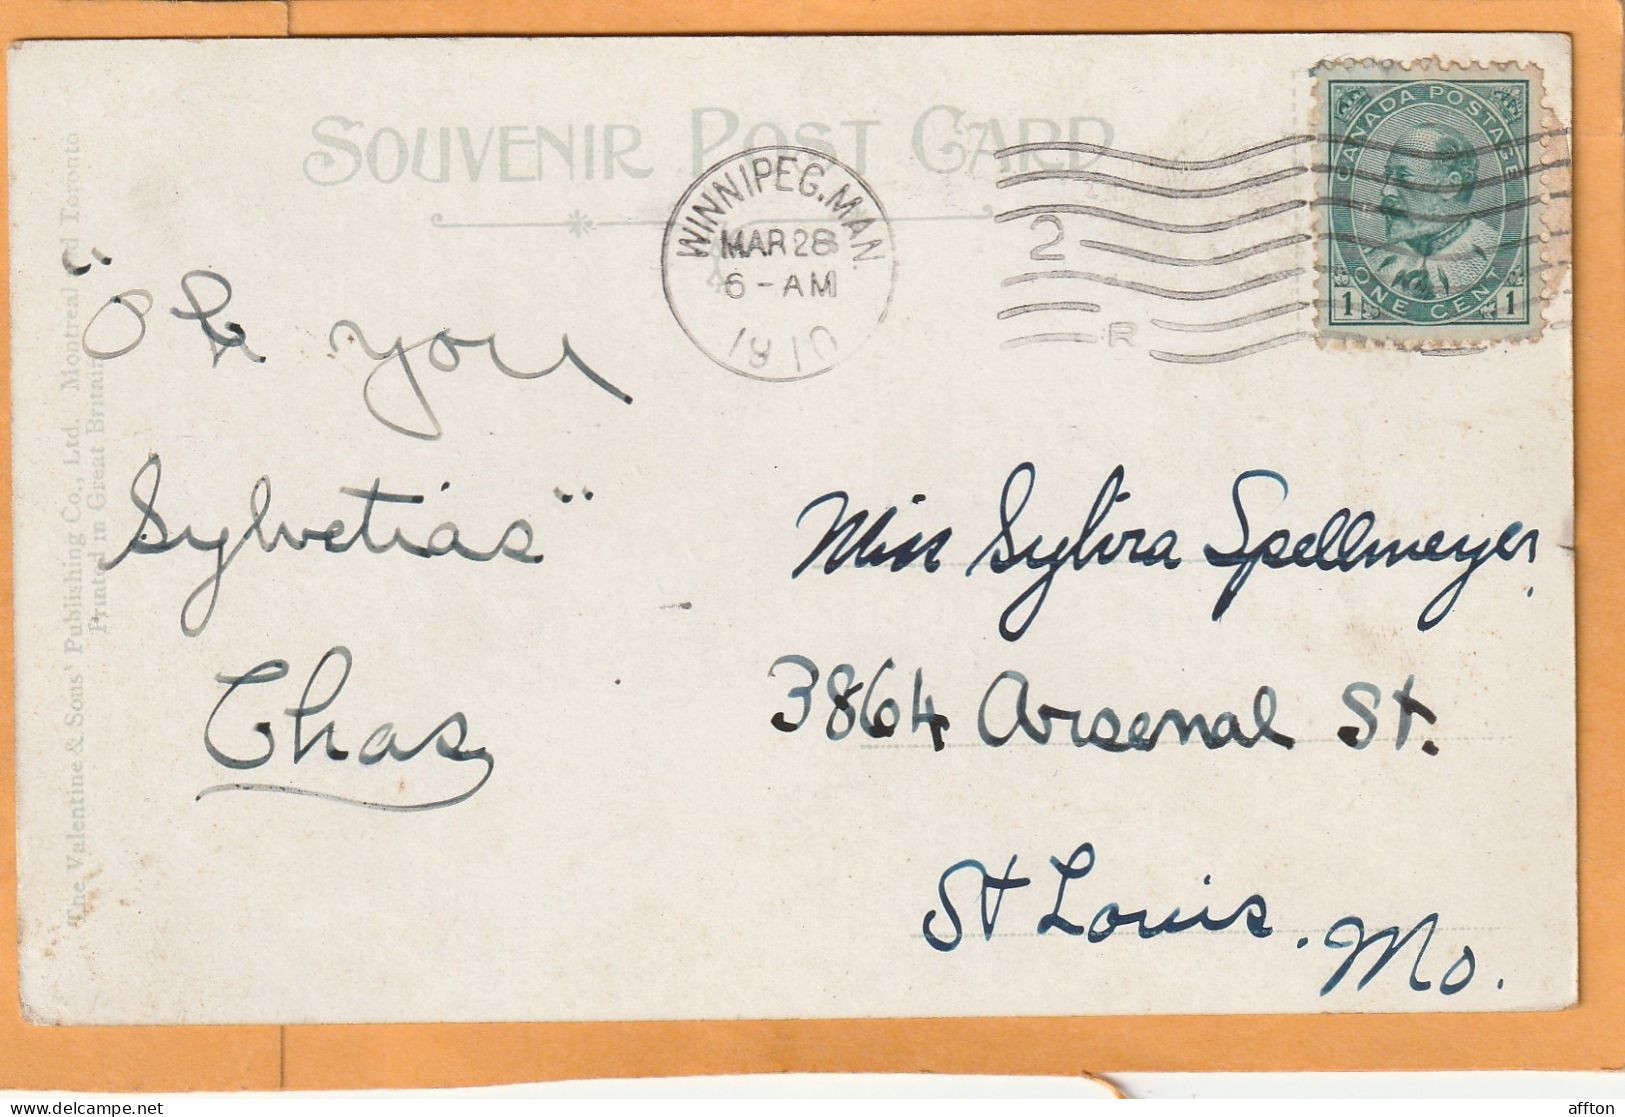 SOUVENIR POST CARD
WINNIPEG. MAN.
MAR 28
6-AM
1910
2
R
CANADA POSTAGE
1 ONE CENT 1
"Oh you
Sylvetias"
Chas
Miss Sylvia Spellmeyer,
3864 Arsenal St.
St Louis. Mo.
The Valentine & Sons' Publishing Co., Ltd. Montreal and Toronto
Printed in Great Britain
affton